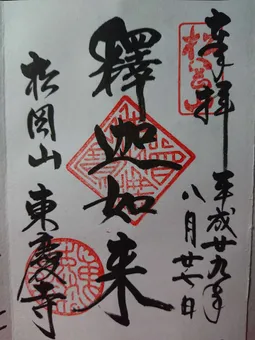 奉拝
平成廿九年
八月廿七日
釋迦如来
松岡山 東慶寺